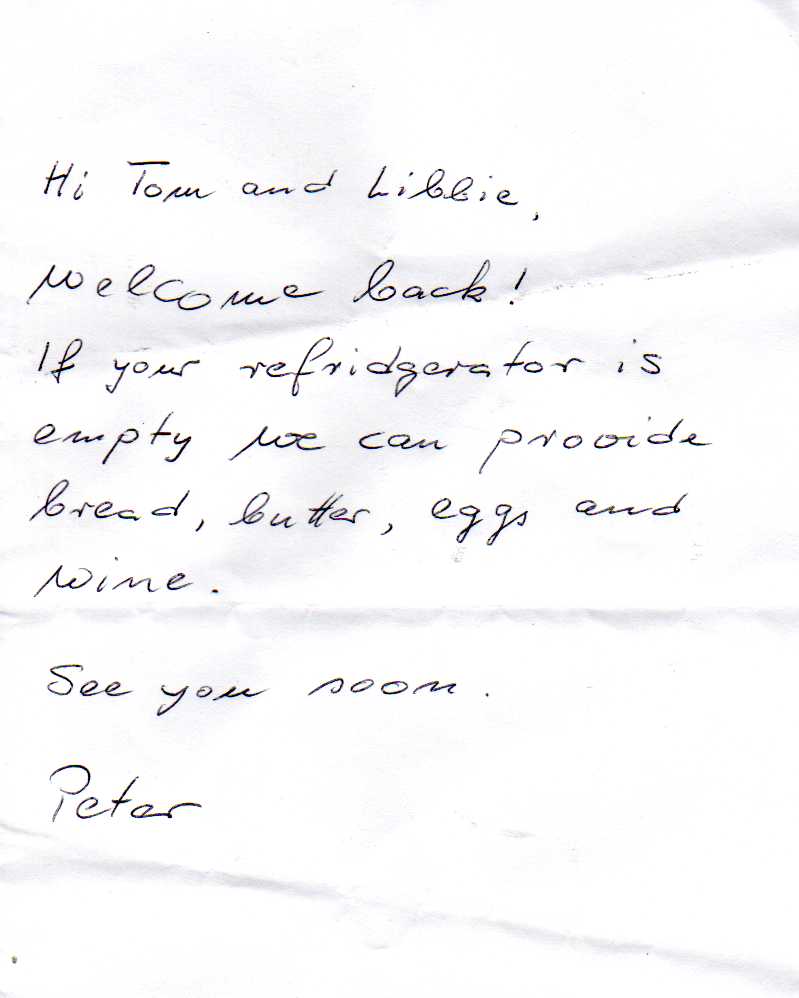 Hi Tom and Libbie,
Welcome back!
If your refridgerator is
empty we can provide
bread, butter, eggs and
wine.
See you soon.
Peter